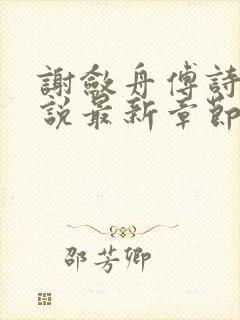 謝斂舟傅詩
說最新章節
邵芳卿